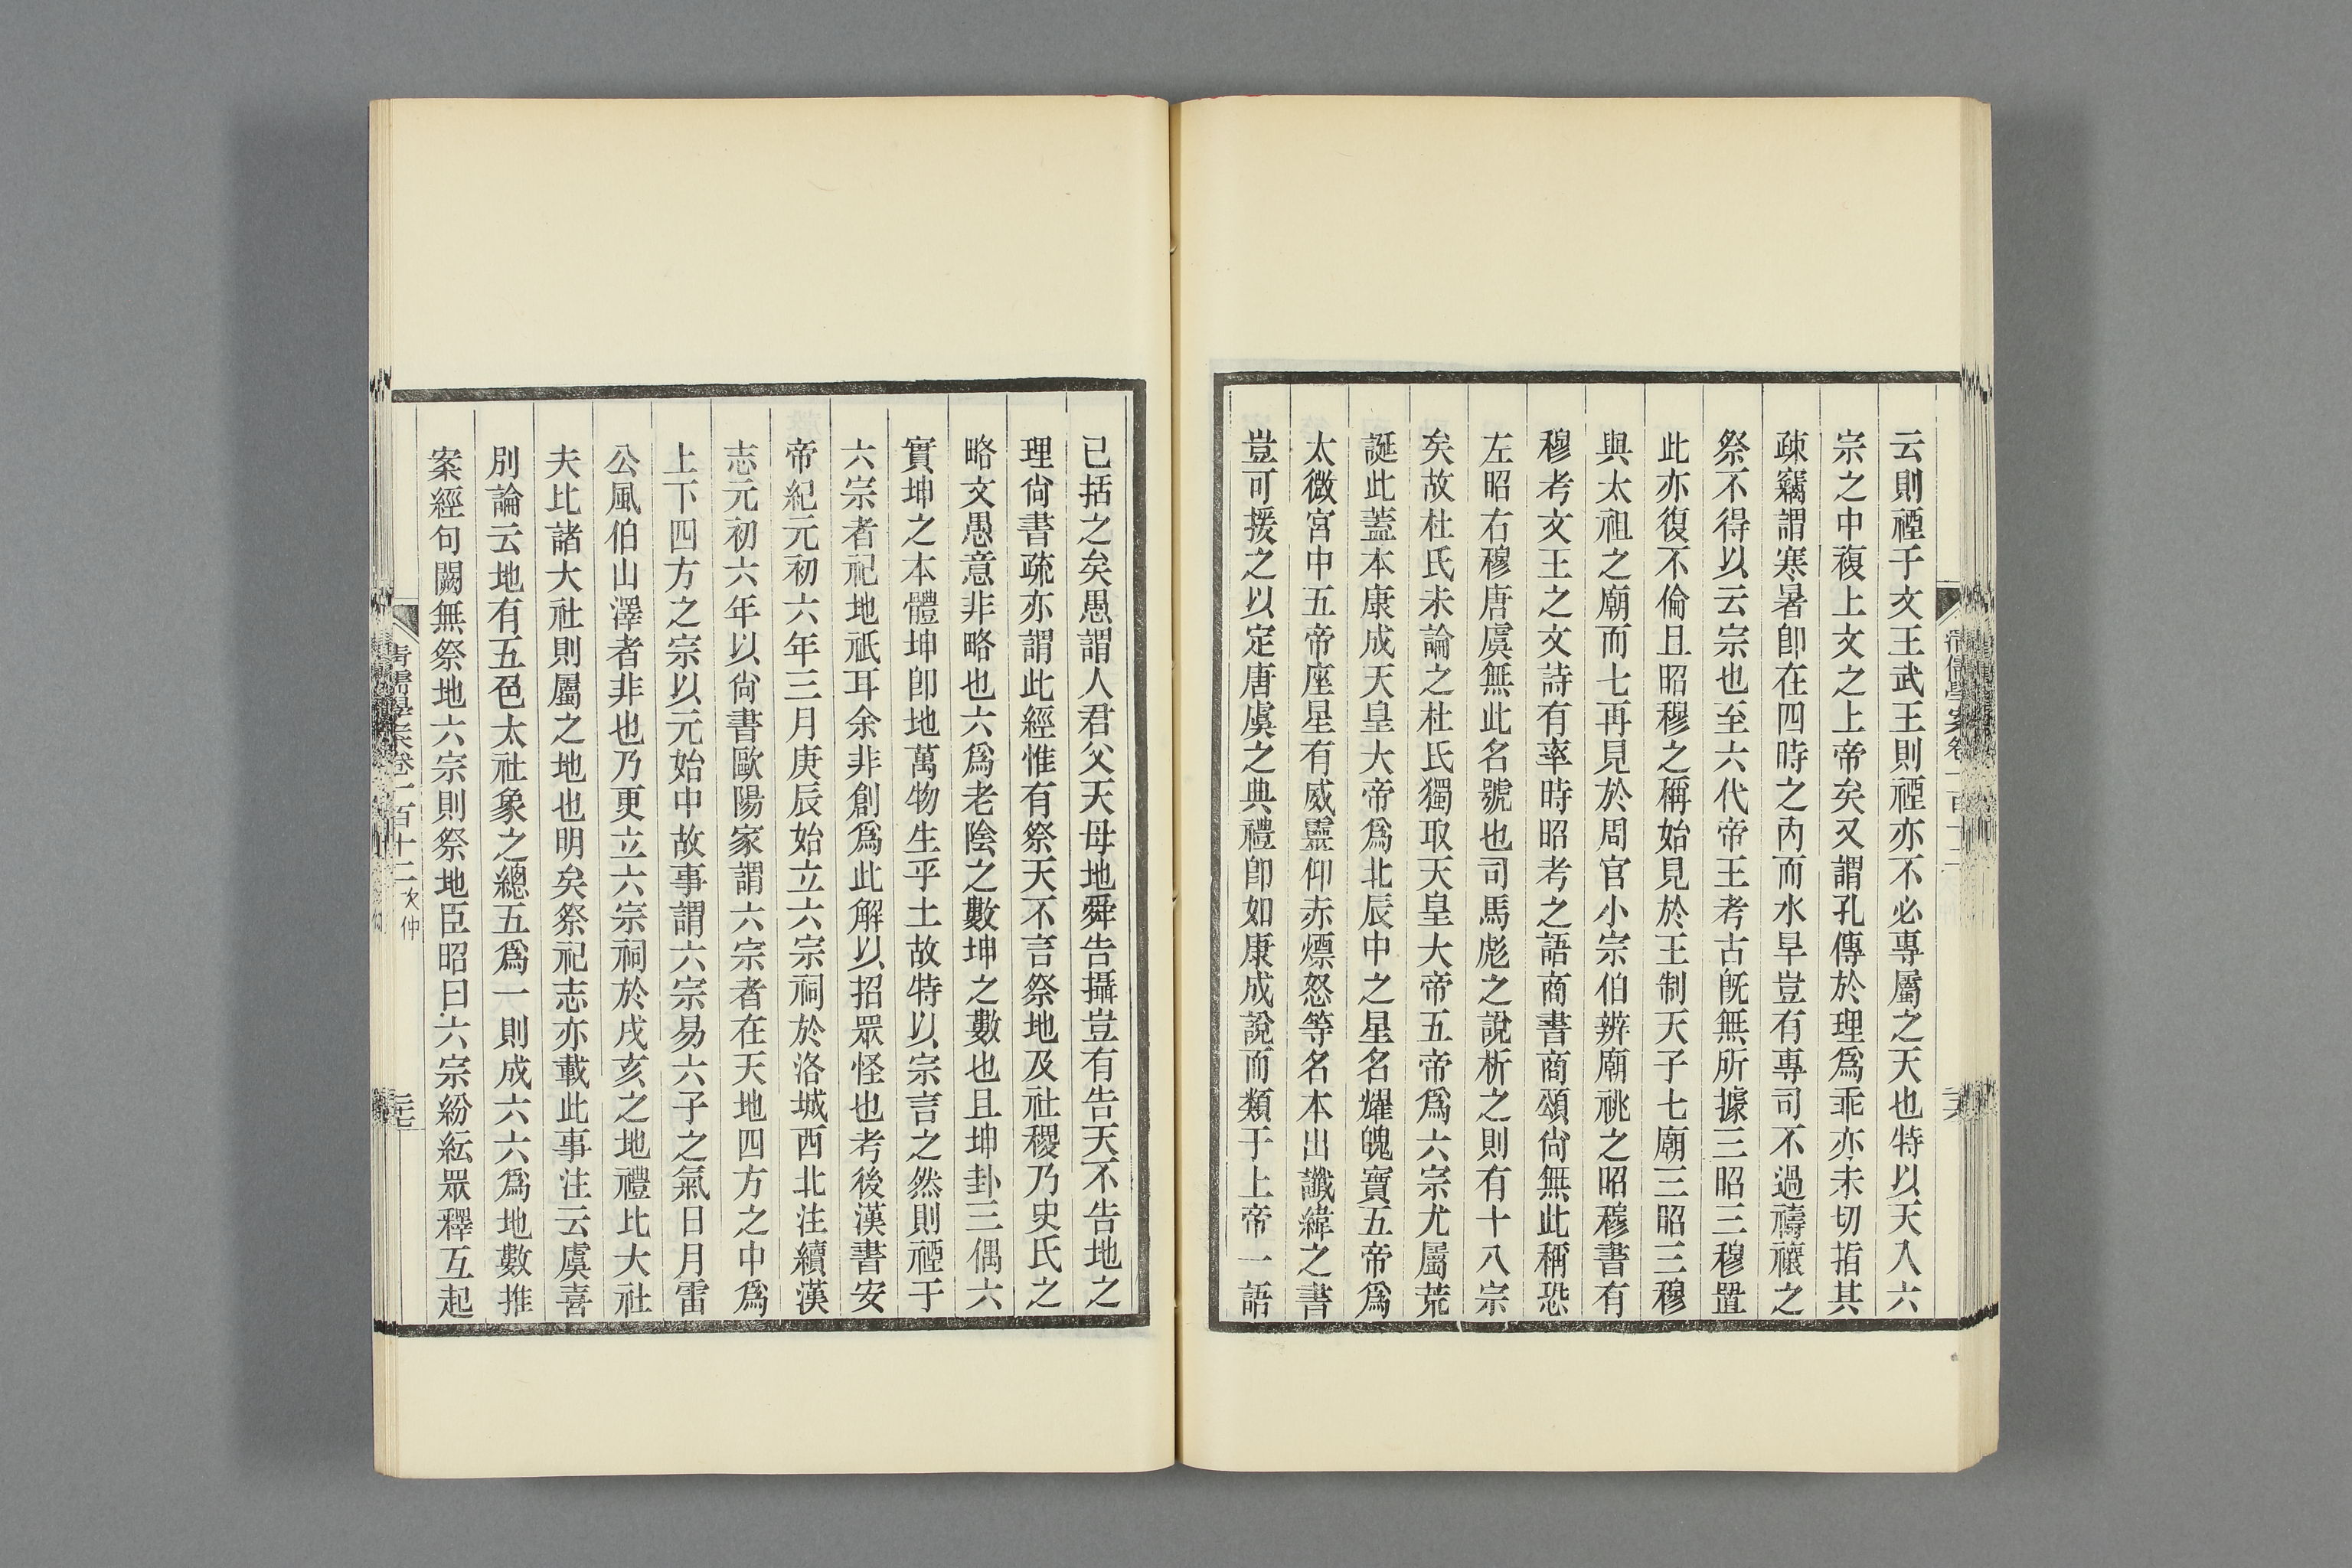 云則禋于文王武王則禋亦不必專屬之天也特以天入六
宗之中複上文之上帝矣又謂孔傳於理爲乖亦未切指其
疎竊謂寒暑卽在四時之內而水旱豈有專司不過禱禳之
祭不得以云宗也至六代帝王考古旣無所據三昭三穆置
此亦復不倫且昭穆之稱始見於王制天子七廟三昭三穆
與太祖之廟而七再見於周官小宗伯辨廟祧之昭穆書有
穆考文王之文詩有率時昭考之語商書商頌尙無此稱恐
左昭右穆唐虞無此名號也司馬彪之說析之則有十八宗
矣故杜氏未論之杜氏獨取天皇大帝五帝爲六宗尤屬荒
誕此蓋本康成天皇大帝爲北辰中之星名耀魄寶五帝爲
太微宮中五帝座星有威靈仰赤熛怒等名本出讖緯之書
豈可援之以定唐虞之典禮卽如康成說而類于上帝一語
已括之矣愚謂人君父天母地舜告攝豈有告天不告地之
理尙書疏亦謂此經惟有祭天不言祭地及社稷乃史氏之
略文愚意非略也六爲老陰之數坤之數也且坤卦三偶六
實坤之本體坤卽地萬物生乎土故特以宗言之然則禋于
六宗者祀地祇耳余非創爲此解以招眾怪也考後漢書安
帝紀元初六年三月庚辰始立六宗祠於洛城西北注續漢
志元初六年以尙書歐陽家謂六宗者在天地四方之中爲
上下四方之宗以元始中故事謂六宗易六子之氣日月雷
公風伯山澤者非也乃更立六宗祠於戌亥之地禮比大社
夫比諸大社則屬之地也明矣祭祀志亦載此事注云虞喜
別論云地有五色太社象之總五爲一則成六六爲地數推
案經句闕無祭地六宗則祭地臣昭曰六宗紛紜眾釋互起
清儒學案卷一百十二 次仲
二十七